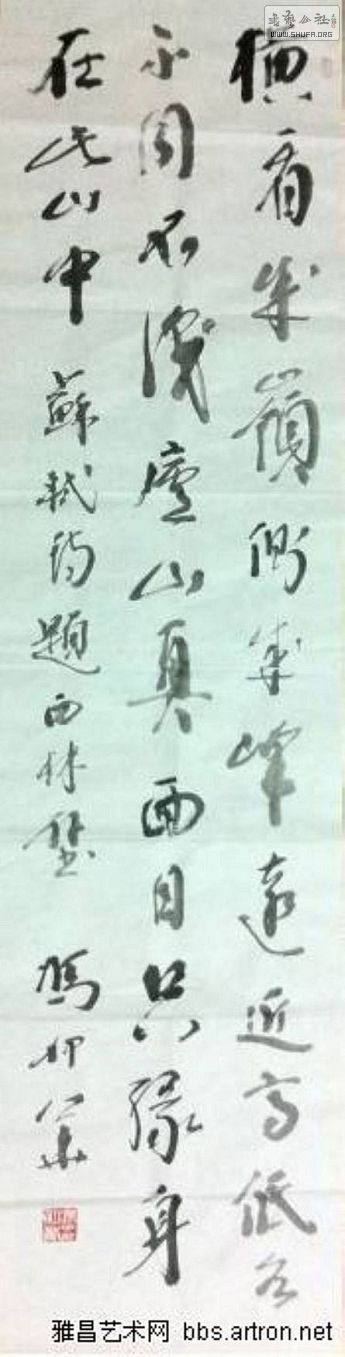 书艺公社
WWW.SHUFA.ORG
橫看成嶺側成峰遠近高低各
不同不識廬山真面目只緣身
在此山中 蘇軾詩題西林壁
雅昌艺术网 bbs.artron.net